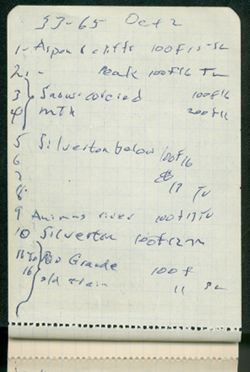 53-65 Oct 2
1- Aspen & cliffs 100 f 15
2. - Peak 100 f 16
3 Snow-covered 100 f 16
4 mtn 200 f 11
5 Silverton below 100 f 16
6
7
8
9 Animas river 100 f 13
10 Silverton 100 f 12
11 to Rio Grande 100 f
16 old train 11